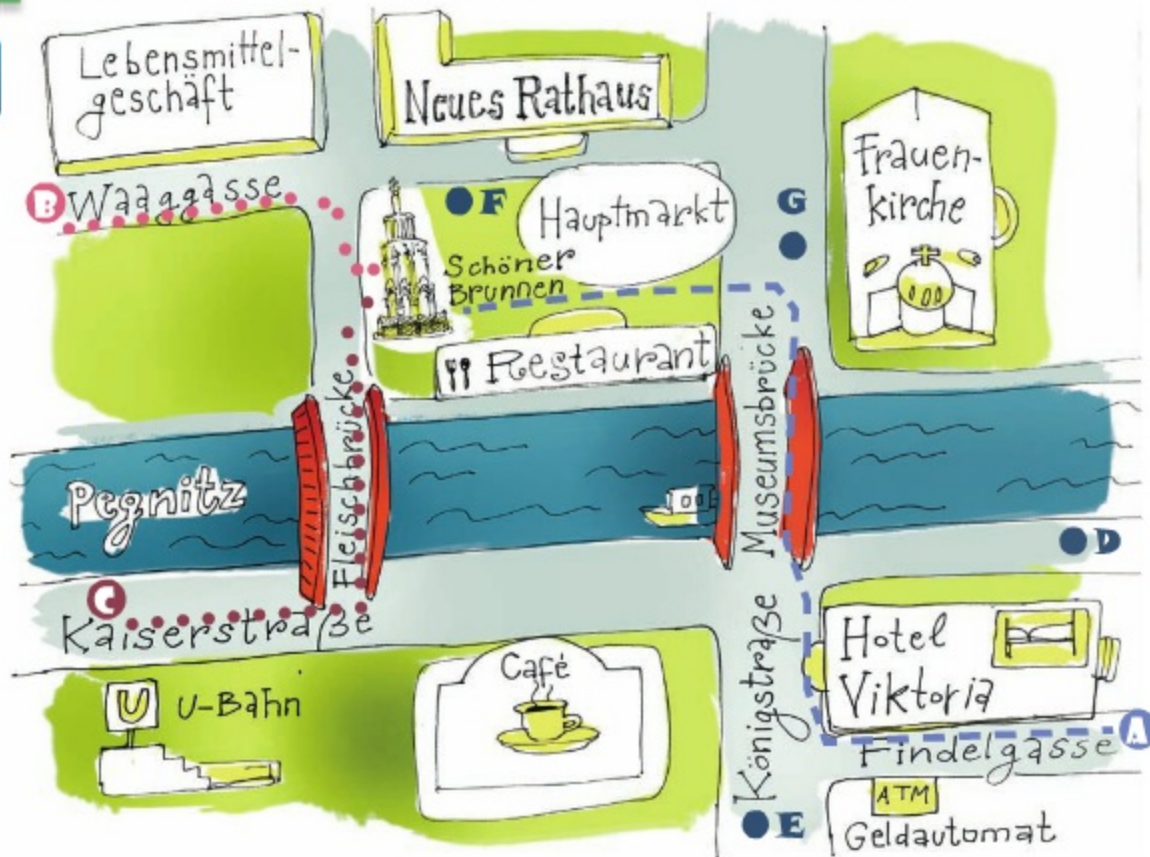 Lebensmittel-
geschäft
Neues Rathaus
Frauen-
kirche
B
Waaggasse
F
Hauptmarkt
G
Schöner
Brunnen
Restaurant
Museumsbrücke
Fleischbrücke
Pegnitz
D
C
Kaiserstraße
Königstraße
Hotel
Viktoria
Café
U
U-Bahn
A
Findelgasse
ATM
Geldautomat
E